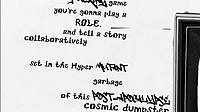 game
you're gonna play a
ROLE.
and tell a story
collaboratively
set in the Hyper MUTANT
garbage
of this POST-APOCALYPSE
cosmic dumpster